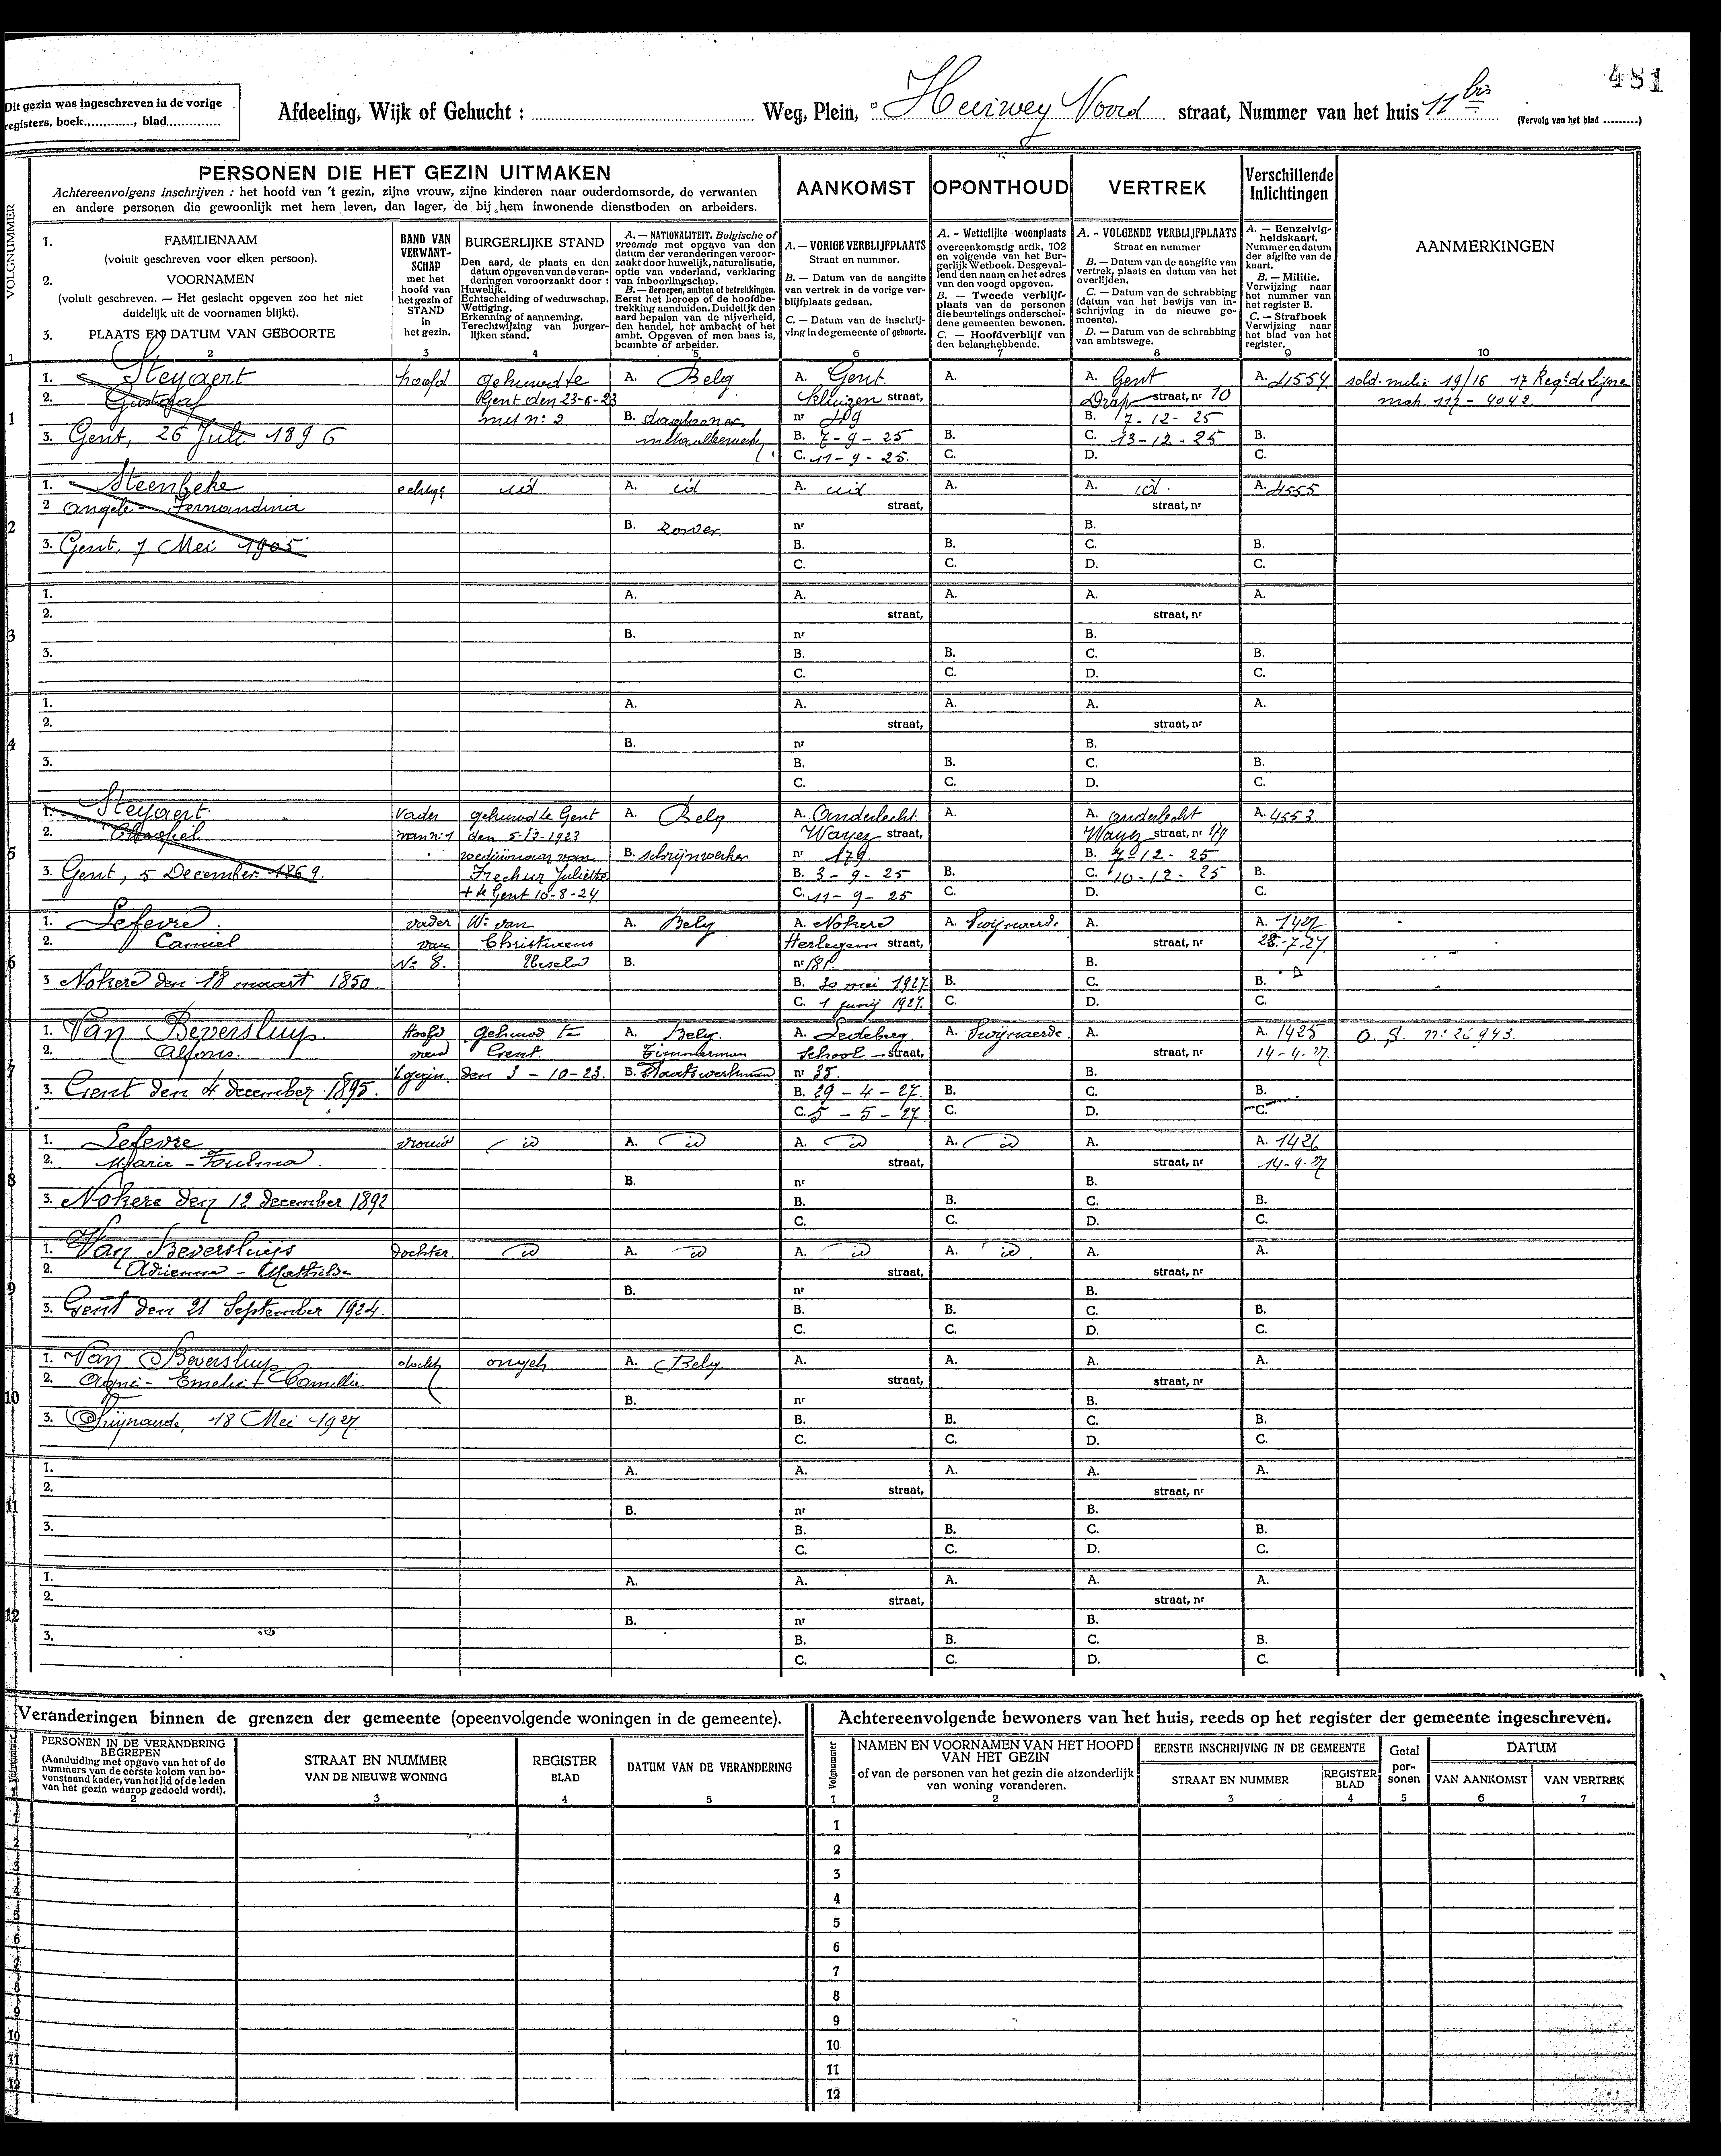 481
Dit gezin was ingeschreven in de vorige
registers, boek............, blad.............
Afdeeling, Wijk of Gehucht : Weg, Plein, Heirweg Noord straat, Nummer van het huis 11 bis (Vervolg van het blad .........)
PERSONEN DIE HET GEZIN UITMAKEN
Achtereenvolgens inschrijven : het hoofd van 't gezin, zijne vrouw, zijne kinderen naar ouderdomsorde, de verwanten
en andere personen die gewoonlijk met hem leven, dan lager, de bij hem inwonende dienstboden en arbeiders.
AANKOMST
OPONTHOUD
VERTREK
Verschillende
Inlichtingen
VOLGNUMMER
1.
FAMILIENAAM
(voluit geschreven voor elken persoon).
2.
VOORNAMEN
(voluit geschreven. — Het geslacht opgeven zoo het niet
duidelijk uit de voornamen blijkt).
3. PLAATS EN DATUM VAN GEBOORTE
BAND VAN
VERWANT-
SCHAP
met het
hoofd van
het gezin of
STAND
in
het gezin.
BURGERLIJKE STAND
Den aard, de plaats en den
datum opgeven van de veran-
deringen veroorzaakt door :
Huwelijk.
Echtscheiding of weduwschap.
Wettiging.
Erkenning of aanneming.
Terechtwijzing van burger-
lijken stand.
A. — NATIONALITEIT. Belgische of
vreemde met opgave van den
datum der veranderingen veroor-
zaakt door huwelijk, naturalisatie,
optie van vaderland, verklaring
van inboorlingschap.
B. — Beroepen, ambten of betrekkingen.
Eerst het beroep of de hoofdbe-
trekking aanduiden. Duidelijk den
aard bepalen van de nijverheid,
den handel, het ambacht of het
ambt. Opgeven of men baas is,
beambte of arbeider.
A. — VORIGE VERBLIJFPLAATS
Straat en nummer.
B. — Datum van de aangifte
van vertrek in de vorige ver-
blijfplaats gedaan.
C. — Datum van de inschrij-
ving in de gemeente of geboorte.
A. - Wettelijke woonplaats
overeenkomstig artik. 102
en volgende van het Bur-
gerlijk Wetboek. Desgeval-
lend den naam en het adres
van den voogd opgeven.
B. — Tweede verblijf-
plaats van de personen
die beurtelings onderschei-
dene gemeenten bewonen.
C. — Hoofdverblijf van
den belanghebbende.
A. - VOLGENDE VERBLIJFPLAATS
Straat en nummer
B. — Datum van de aangifte van
vertrek, plaats en datum van het
overlijden.
C. — Datum van de schrabbing
(datum van het bewijs van in-
schrijving in de nieuwe ge-
meente).
D. — Datum van de schrabbing
van ambtswege.
A. — Eenzelvig-
heidskaart.
Nummer en datum
der afgifte van de
kaart.
B. — Militie.
Verwijzing naar
het nummer van
het register B.
C. — Strafboek
Verwijzing naar
het blad van het
register.
AANMERKINGEN
1 2 3 4 5 6 7 8 9 10
1. Steyaert hoofd gehuwd te A. Belg A. Gent. A. A. Gent A. 4554 sold. milic 19/16 17 Regt de Lijne
2. Gustaaf Gent den 23-6-23 Kluizen straat, Drap straat, nr 10 mat. 117 - 4042.
1 met n: 2 B. nr 49 B. 7-12-25
3. Gent, 26 Juli 1896 B. 7-9-25 B. C. 13-12-25 B.
C. 11-9-25. C. D. C.
1. Steenbeke echtge id A. id A. id A. A. id. A. 4555
2 Angele - Fernandina straat, straat, nr
2 B. nr B.
3. Gent, 7 Mei 1905 B. B. C. B.
C. C. D. C.
1. A. A. A. A. A.
2. straat, straat, nr
3 B. nr B.
3. B. B. C. B.
C. C. D. C.
1. A. A. A. A. A.
2. straat, straat, nr
4 B. nr B.
3. B. B. C. B.
C. C. D. C.
1. Steyaert Vader gehuwd te Gent A. Belg A. Anderlecht. A. A. Anderlecht A. 4553
2. Theofiel van n: 1 den 5-12-1923 Wayez straat, Wayez straat, nr 179
5 weduwnaar van B. schrijnwerker nr 179. B. 7-12-25
3. Gent, 5 December 1869. Frechur Juliette B. 3-9-25 B. C. 10-12-25 B.
+ te Gent 10-8-24 C. 11-9-25 C. D. C.
1. Lefevre vader W: van A. Belg A. Nokere A. Swijnaerde A. A. 1427
2. Camiel van Christiaens Herlegem straat, straat, nr 28-7-27
6 N: 8. B. nr 181. B.
3 Nokere den 18 maart 1850. B. 30 mei 1927 B. C. B.
C. 1 junij 1927. C. D. C.
1. Van Beversluys Hoofd gehuwd te A. Belg. A. Ledeberg. A. Swijnaerde. A. A. 1425 O. S. n: 26943.
2. Alfons. van Gent. Timmerman School - straat, straat, nr 14-4-27.
7 't gezin. den 3 - 10-23. B. Staatswerkman nr 35. B.
3. Gent den 4 december 1895. B. 29 - 4 - 27. B. C. B.
C. 5 - 5 - 27. C. D. C.
1. Lefevre vrouw id A. id A. id A. id A. A. 1426
2. Marie - Zulma. straat, straat, nr 14-4-27
8 B. nr B.
3. Nokere den 12 december 1892 B. B. C. B.
C. C. D. C.
1. Van Beversluijs dochter. id A. id A. id A. id. A. A.
2. Adrienna - Mathilde straat, straat, nr
9 B. nr B.
3. Gent den 21 September 1924. B. B. C. B.
C. C. D. C.
1. Van Beversluys docht ongeh A. Belg. A. A. A. A.
2. Emelie + Camillia straat, straat, nr
10 B. nr B.
3. 18 Mei 1927. B. B. C. B.
C. C. D. C.
1. A. A. A. A. A.
2. straat, straat, nr
11 B. nr B.
3. B. B. C. B.
C. C. D. C.
1. A. A. A. A. A.
2. straat, straat, nr
12 B. nr B.
3. B. B. C. B.
C. C. D. C.
Veranderingen binnen de grenzen der gemeente (opeenvolgende woningen in de gemeente).
Volgnummer
PERSONEN IN DE VERANDERING
BEGREPEN
(Aanduiding met opgave van het of de
nummers van de eerste kolom van bo-
venstaand kader, van het lid of de leden
van het gezin waarop gedoeld wordt).
STRAAT EN NUMMER
VAN DE NIEUWE WONING
REGISTER
BLAD
DATUM VAN DE VERANDERING
1 2 3 4 5
1
2
3
4
5
6
7
8
9
10
11
12
Achtereenvolgende bewoners van het huis, reeds op het register der gemeente ingeschreven.
Volgnummer
NAMEN EN VOORNAMEN VAN HET HOOFD
VAN HET GEZIN
of van de personen van het gezin die afzonderlijk
van woning veranderen.
EERSTE INSCHRIJVING IN DE GEMEENTE
STRAAT EN NUMMER
REGISTER
BLAD
Getal
per-
sonen
DATUM
VAN AANKOMST
VAN VERTREK
1 2 3 4 5 6 7
1
2
3
4
5
6
7
8
9
10
11
12